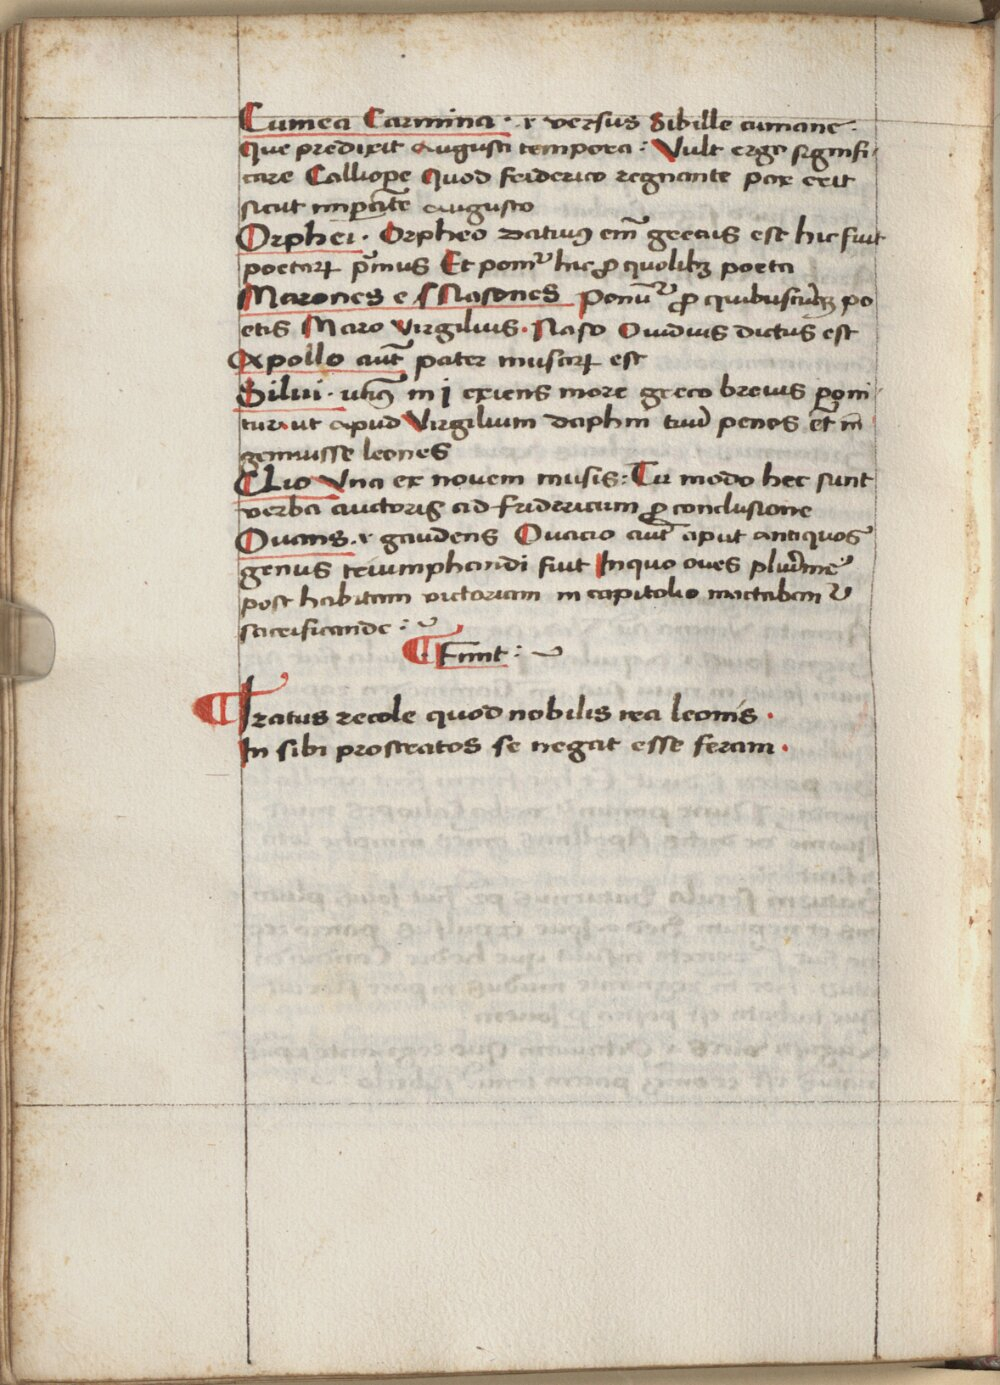 Cumea Carmina · .i. versus Sibille cumane ·
Que predixit Augusti tempora : Vult ergo signifi
care Calliope Quod Friderico regnante pax erit
sicut imp̄ante Augusto
Orphei · Orpheo datiuꝰ em̄ grecus est hic fuit
poetarꝝ p̄mus Et ponit᷑ hic ꝓ quolibꝫ poeta
Marones e Nasones Ponūt᷑ ꝓ quibuscūqꝫ po
etis Maro Virgilius · Naso Ouidius dictus est
Appollo aūt pater musarꝝ est
Silui · utiqꝫ in i exiens more greco breuis poni
tur ut apud Virgilium daphni tuū penos etm̄ in
gemuisse leones
Clio Vna ex novem musis : Tu modo hec sunt
verba auctoris ad fridericum ꝓ conclusione
Ouans .i. gaudens Ouacio aūt aput antiquos
genus triumphandi fuit In quo oues plurime
post habitam victoriam in capitolio mactaban᷑
sacrificande :
Finit :
Iratus recole quod nobilis ira leonis ·
In sibi prostratos se negat esse feram ·